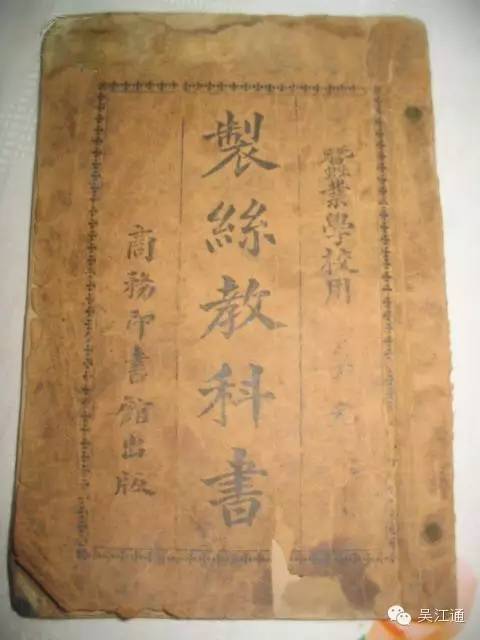 蠶業學校用
製絲教科書
商務印書館出版
吴江通